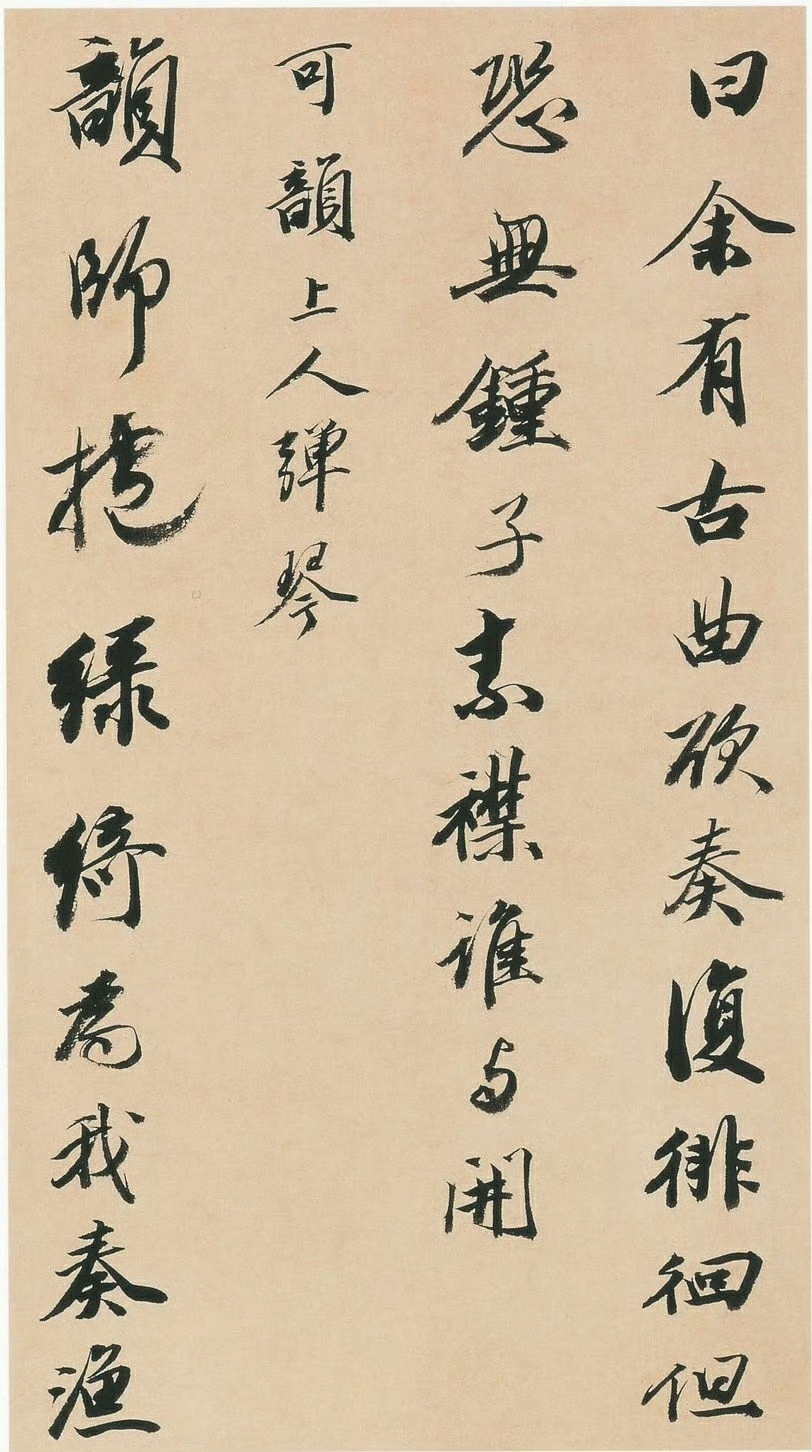 曰余有古曲欲奏復徘徊但
恐無鍾子素襟誰与開
可韻上人彈琴
韻師抱綠綺為我奏漁